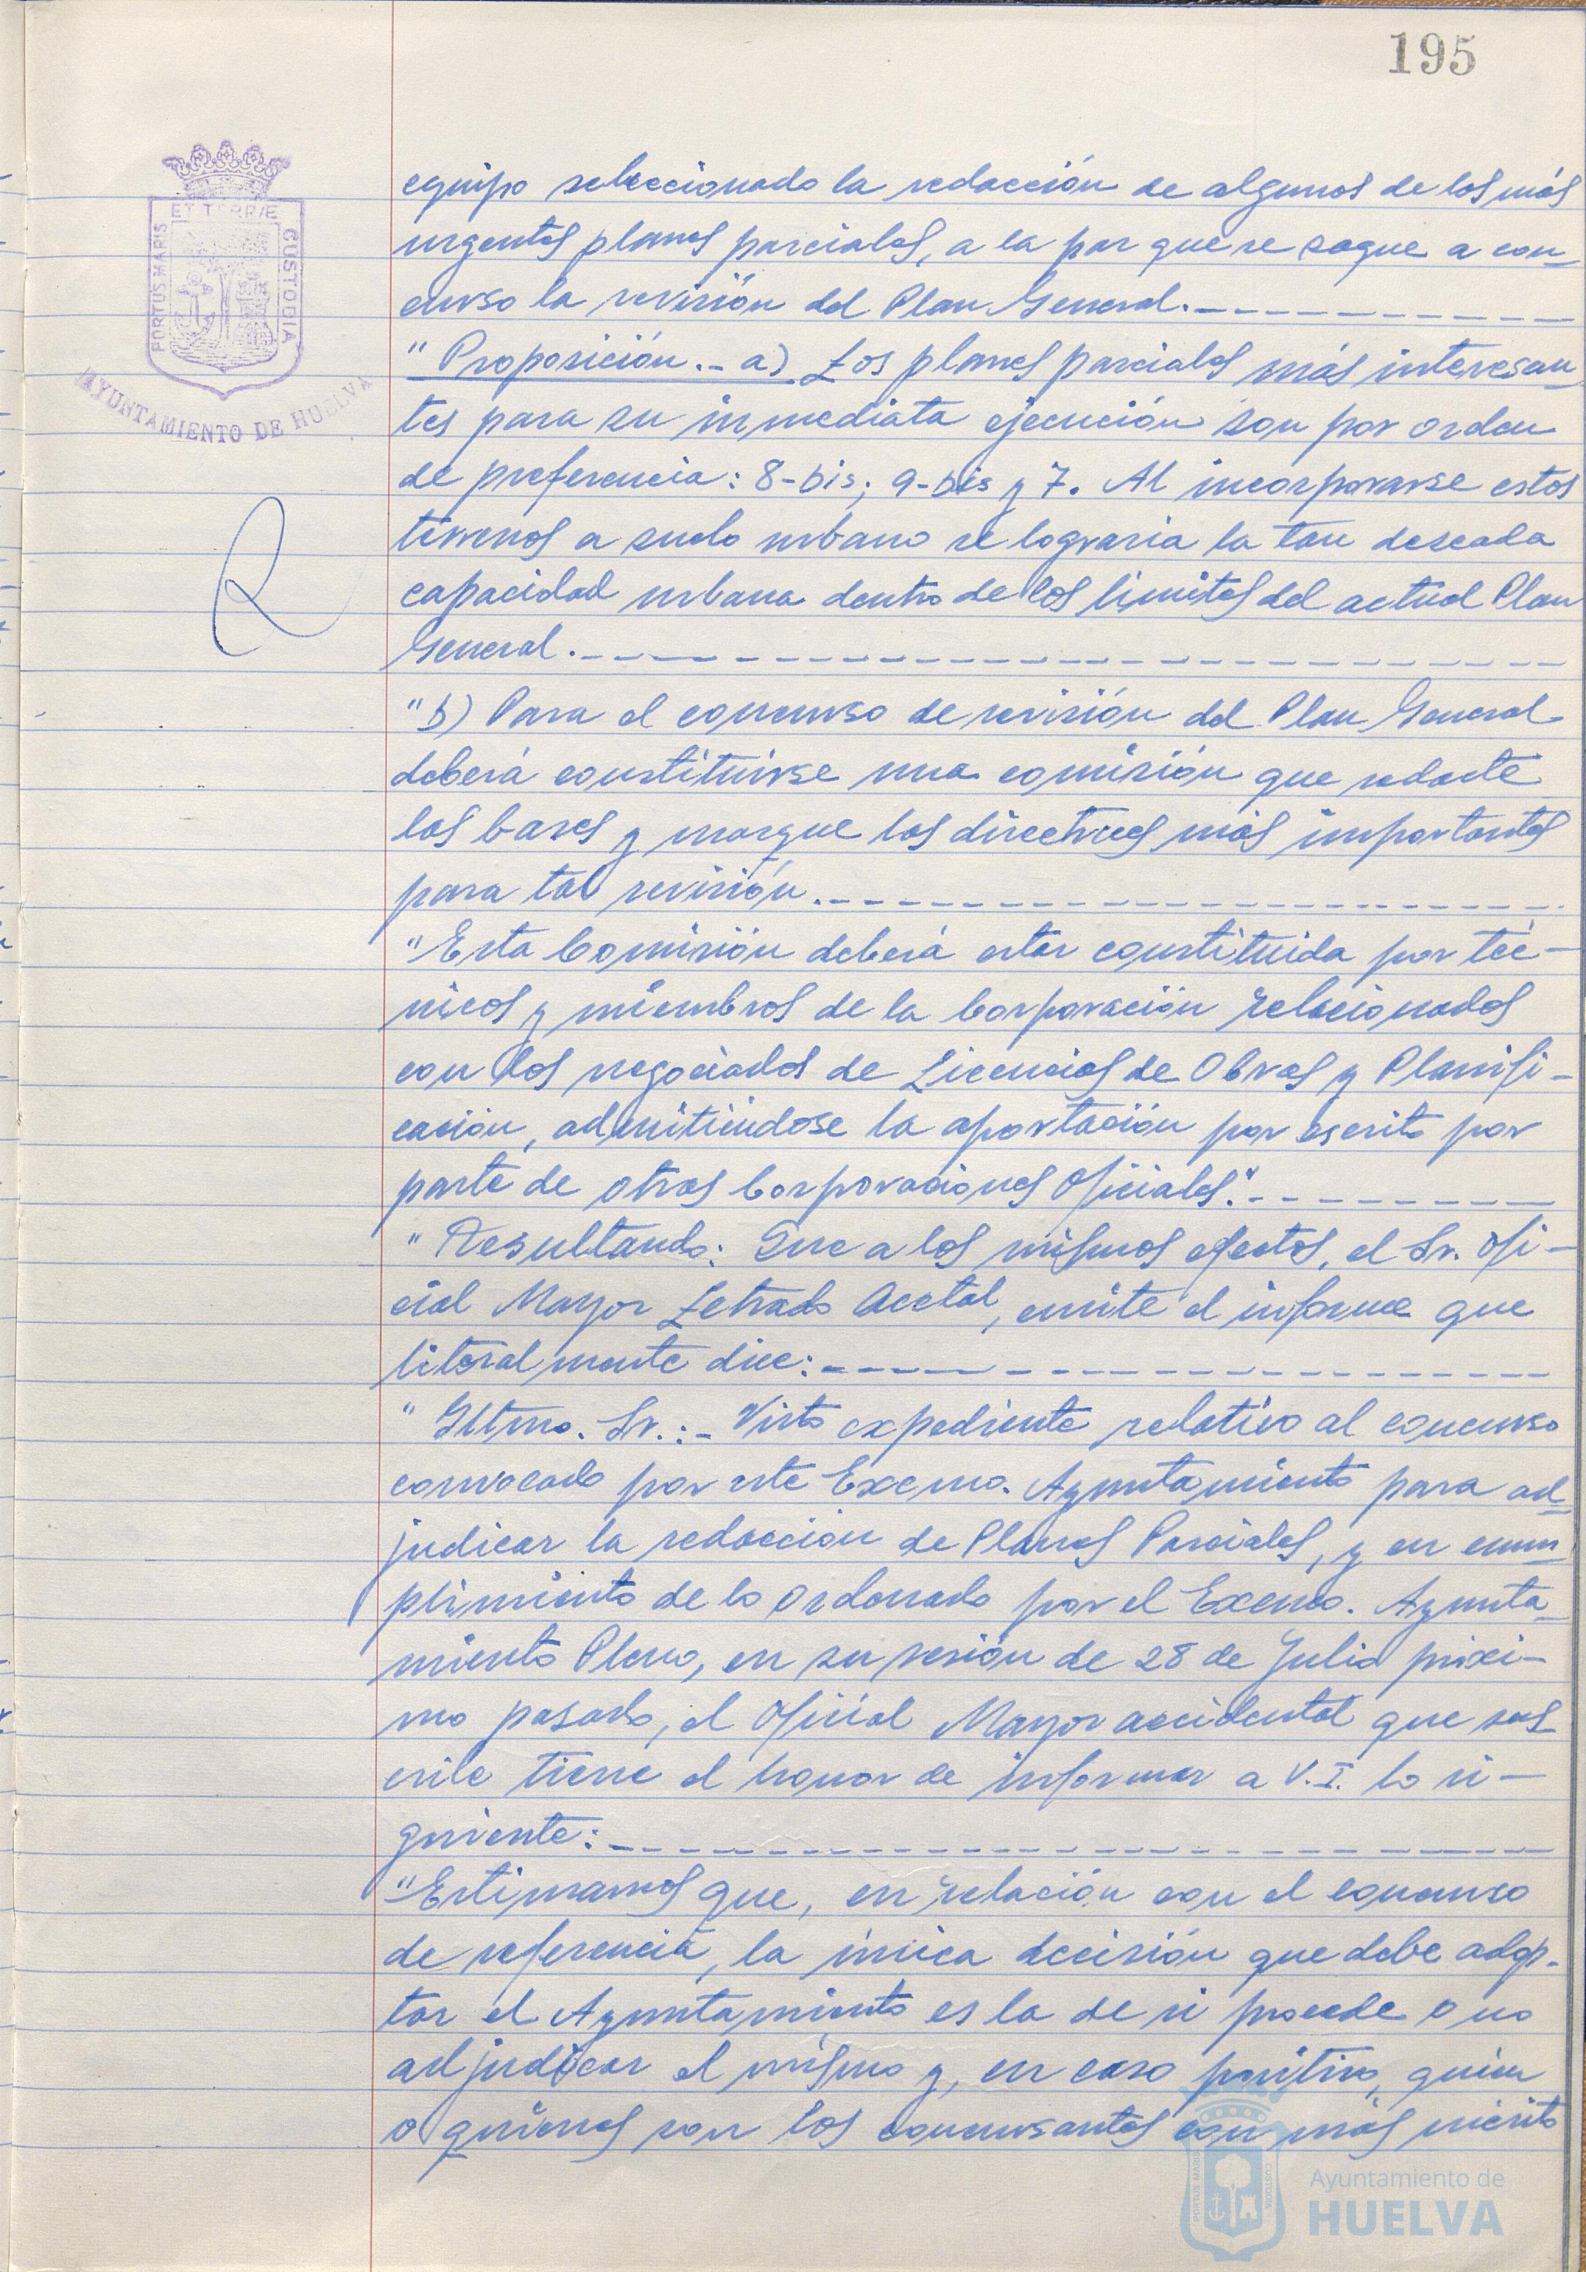 195
ET TERRÆ
PORTUS MARIS
CUSTODIA
AYUNTAMIENTO DE HUELVA
equipo seleccionado la redacción de algunos de los más
urgentes planes parciales, a la par que se saque a con-
curso la revisión del Plan General.
"Proposición.- a) Los planes parciales más interesan-
tes para su inmediata ejecución son por orden
de preferencia: 8-bis; 9-bis y 7. Al incorporarse estos
terrenos a suelo urbano se lograria la tan deseada
capacidad urbana dentro de los limites del actual Plan
General.
"b) Para el concurso de revisión del Plan General
deberá constituirse una comisión que redacte
las bases y marque las directrices más importantes
para tal revisión.
"Esta Comisión deberá estar constituida por téc-
nicos y miembros de la Corporación relacionados
con los negociados de Licencias de Obras y Planifi-
cación, admitiéndose la aportación por escrito por
parte de otras Corporaciones Oficiales".
"Resultando: Que a los mismos efectos, el Sr. Ofi-
cial Mayor Letrado Acctal, emite el informe que
literalmente dice:
"Iltmo. Sr.:- Visto expediente relativo al concurso
convocado por este Excmo. Ayuntamiento para ad-
judicar la redacción de Planes Parciales, y en cum-
plimiento de lo ordenado por el Excmo. Ayunta-
miento Pleno, en su sesión de 28 de Julio próxi-
mo pasado, el Oficial Mayor accidental que sus-
cribe tiene el honor de informar a V.I. lo si-
guiente:
"Estimamos que, en relación con el concurso
de referencia, la única decisión que debe adop-
tar el Ayuntamiento es la de si procede o no
adjudicar el mismo y, en caso positivo, quien
o quienes son los concursantes con más mérito
PORTUS MARIS
CUSTODIA
Ayuntamiento de
HUELVA